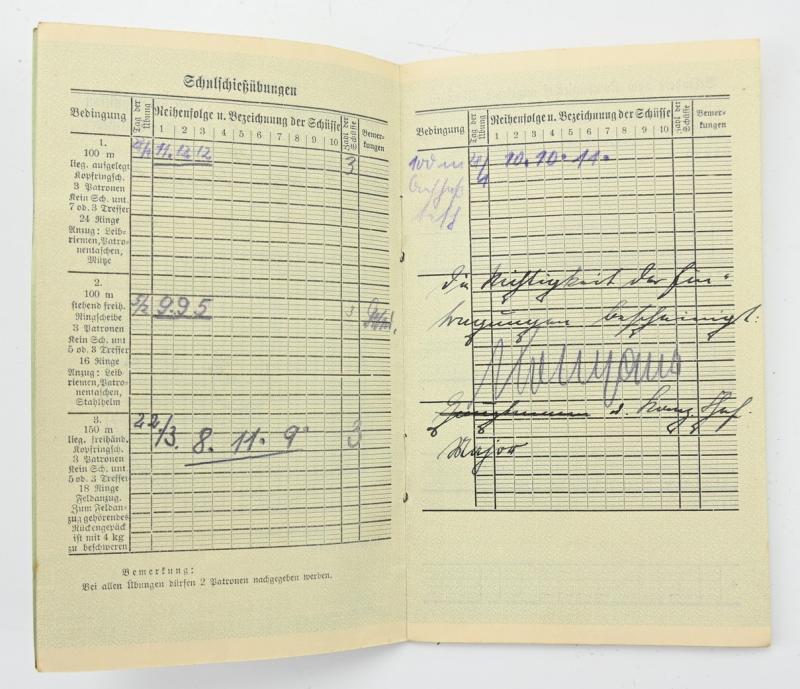 Schulschießübungen
Bedingung
Tag der Übung
Reihenfolge u. Bezeichnung der Schüsse
1 2 3 4 5 6 7 8 9 10
Zahl der Schüsse
Bemer-
kungen
1.
100 m
lieg. aufgelegt
Kopfringsch.
3 Patronen
Kein Sch. unt.
7 od. 3 Treffer
24 Ringe
Anzug: Leib-
riemen, Patro-
nentaschen,
Mütze
11. 12 12
3
2.
100 m
stehend freih.
Ringscheibe
3 Patronen
Kein Sch. unt
5 od. 3 Treffer
16 Ringe
Anzug: Leib-
riemen, Patro-
nentaschen,
Stahlhelm
5/2 9.95
3
3.
150 m
lieg. freihänd.
Kopfringsch.
3 Patronen
Kein Sch. unt
5 od. 3 Treffer
18 Ringe
Feldanzug.
Zum Feldan-
zug gehörendes
Rückengepäck
ist mit 4 kg
zu beschweren
22/3. 8. 11. 9.
3
Bemerkung:
Bei allen Übungen dürfen 2 Patronen nachgegeben werden.
Bedingung
Tag der Übung
Reihenfolge u. Bezeichnung der Schüsse
1 2 3 4 5 6 7 8 9 10
Zahl der Schüsse
Bemer-
kungen
100 m
4/4
10. 10. 11.
Die Richtigkeit der Ein-
tragungen bescheinigt:
u. Komp. Chef.
Major